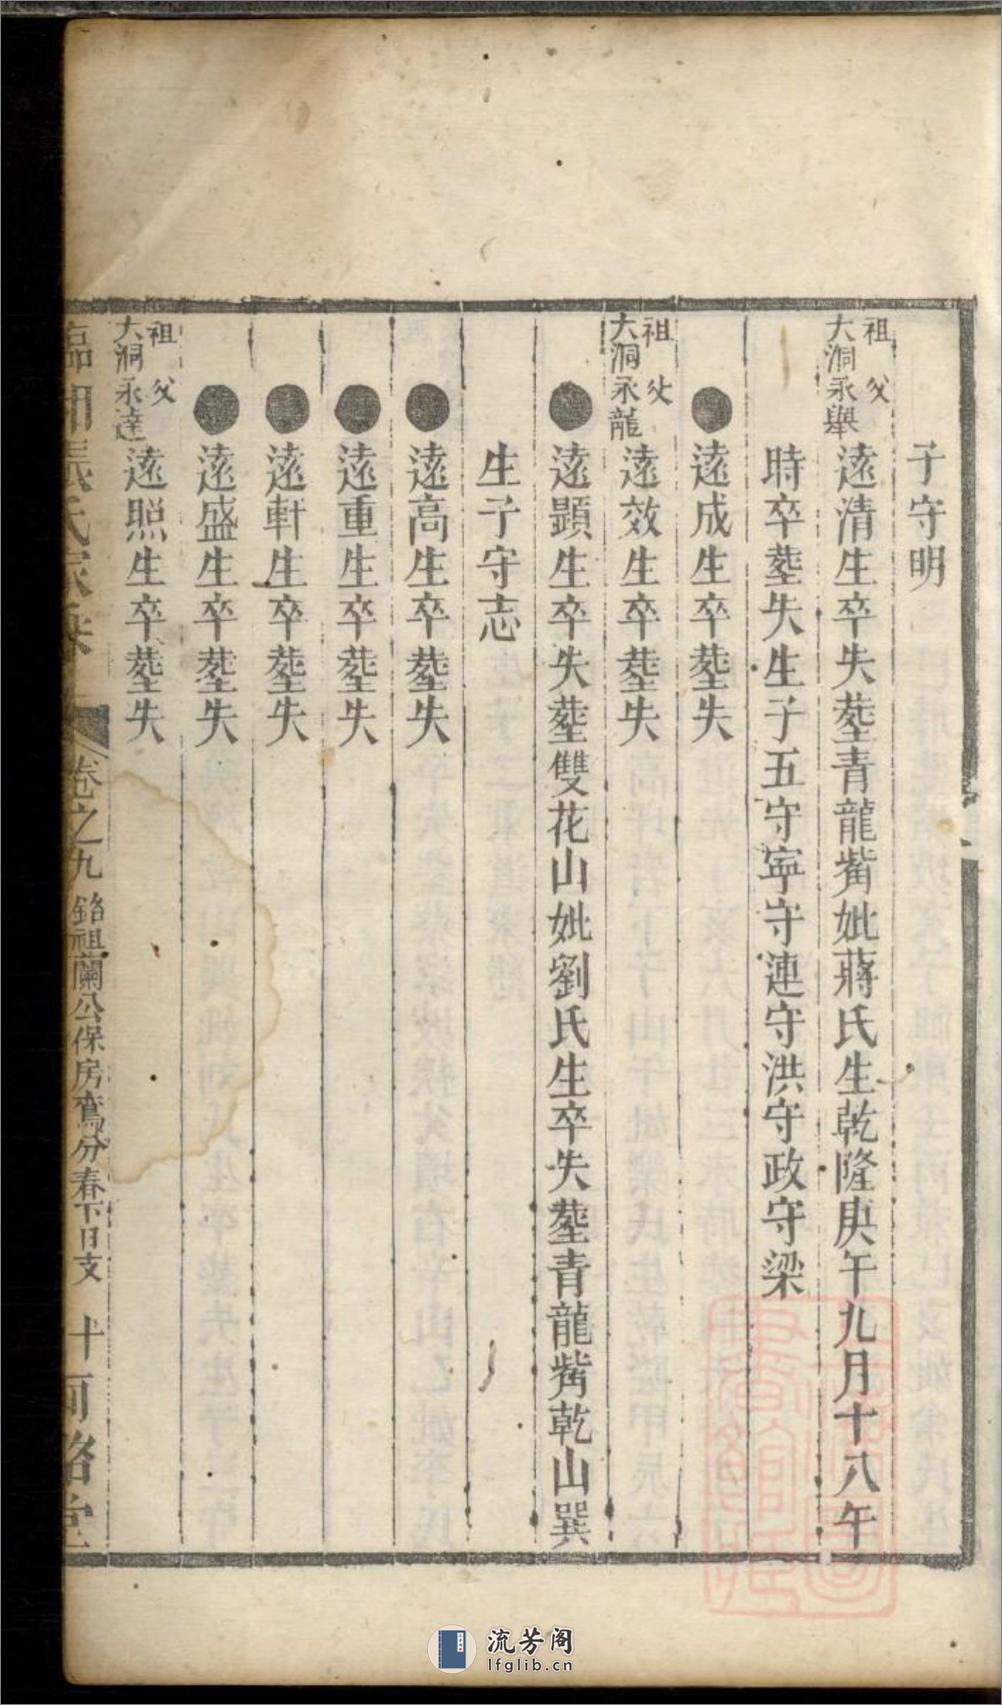 子守明
祖父大洞永舉
遠清生卒失塟青龍觜妣蔣氏生乾隆庚午九月十八午
時卒塟失生子五守寕守連守洪守政守梁
遠成生卒塟失
祖父大洞永龍
遠效生卒塟失
遠顕生卒失塟雙花山妣劉氏生卒失塟青龍觜乾山巽
生子守志
遠高生卒塟失
遠重生卒塟失
遠軒生卒塟失
遠盛生卒塟失
祖父大洞永達
遠照生卒塟失
氏家
卷之九
銘祖蘭公保房鸞分春下日支
十
流芳阁
lfglib.cn